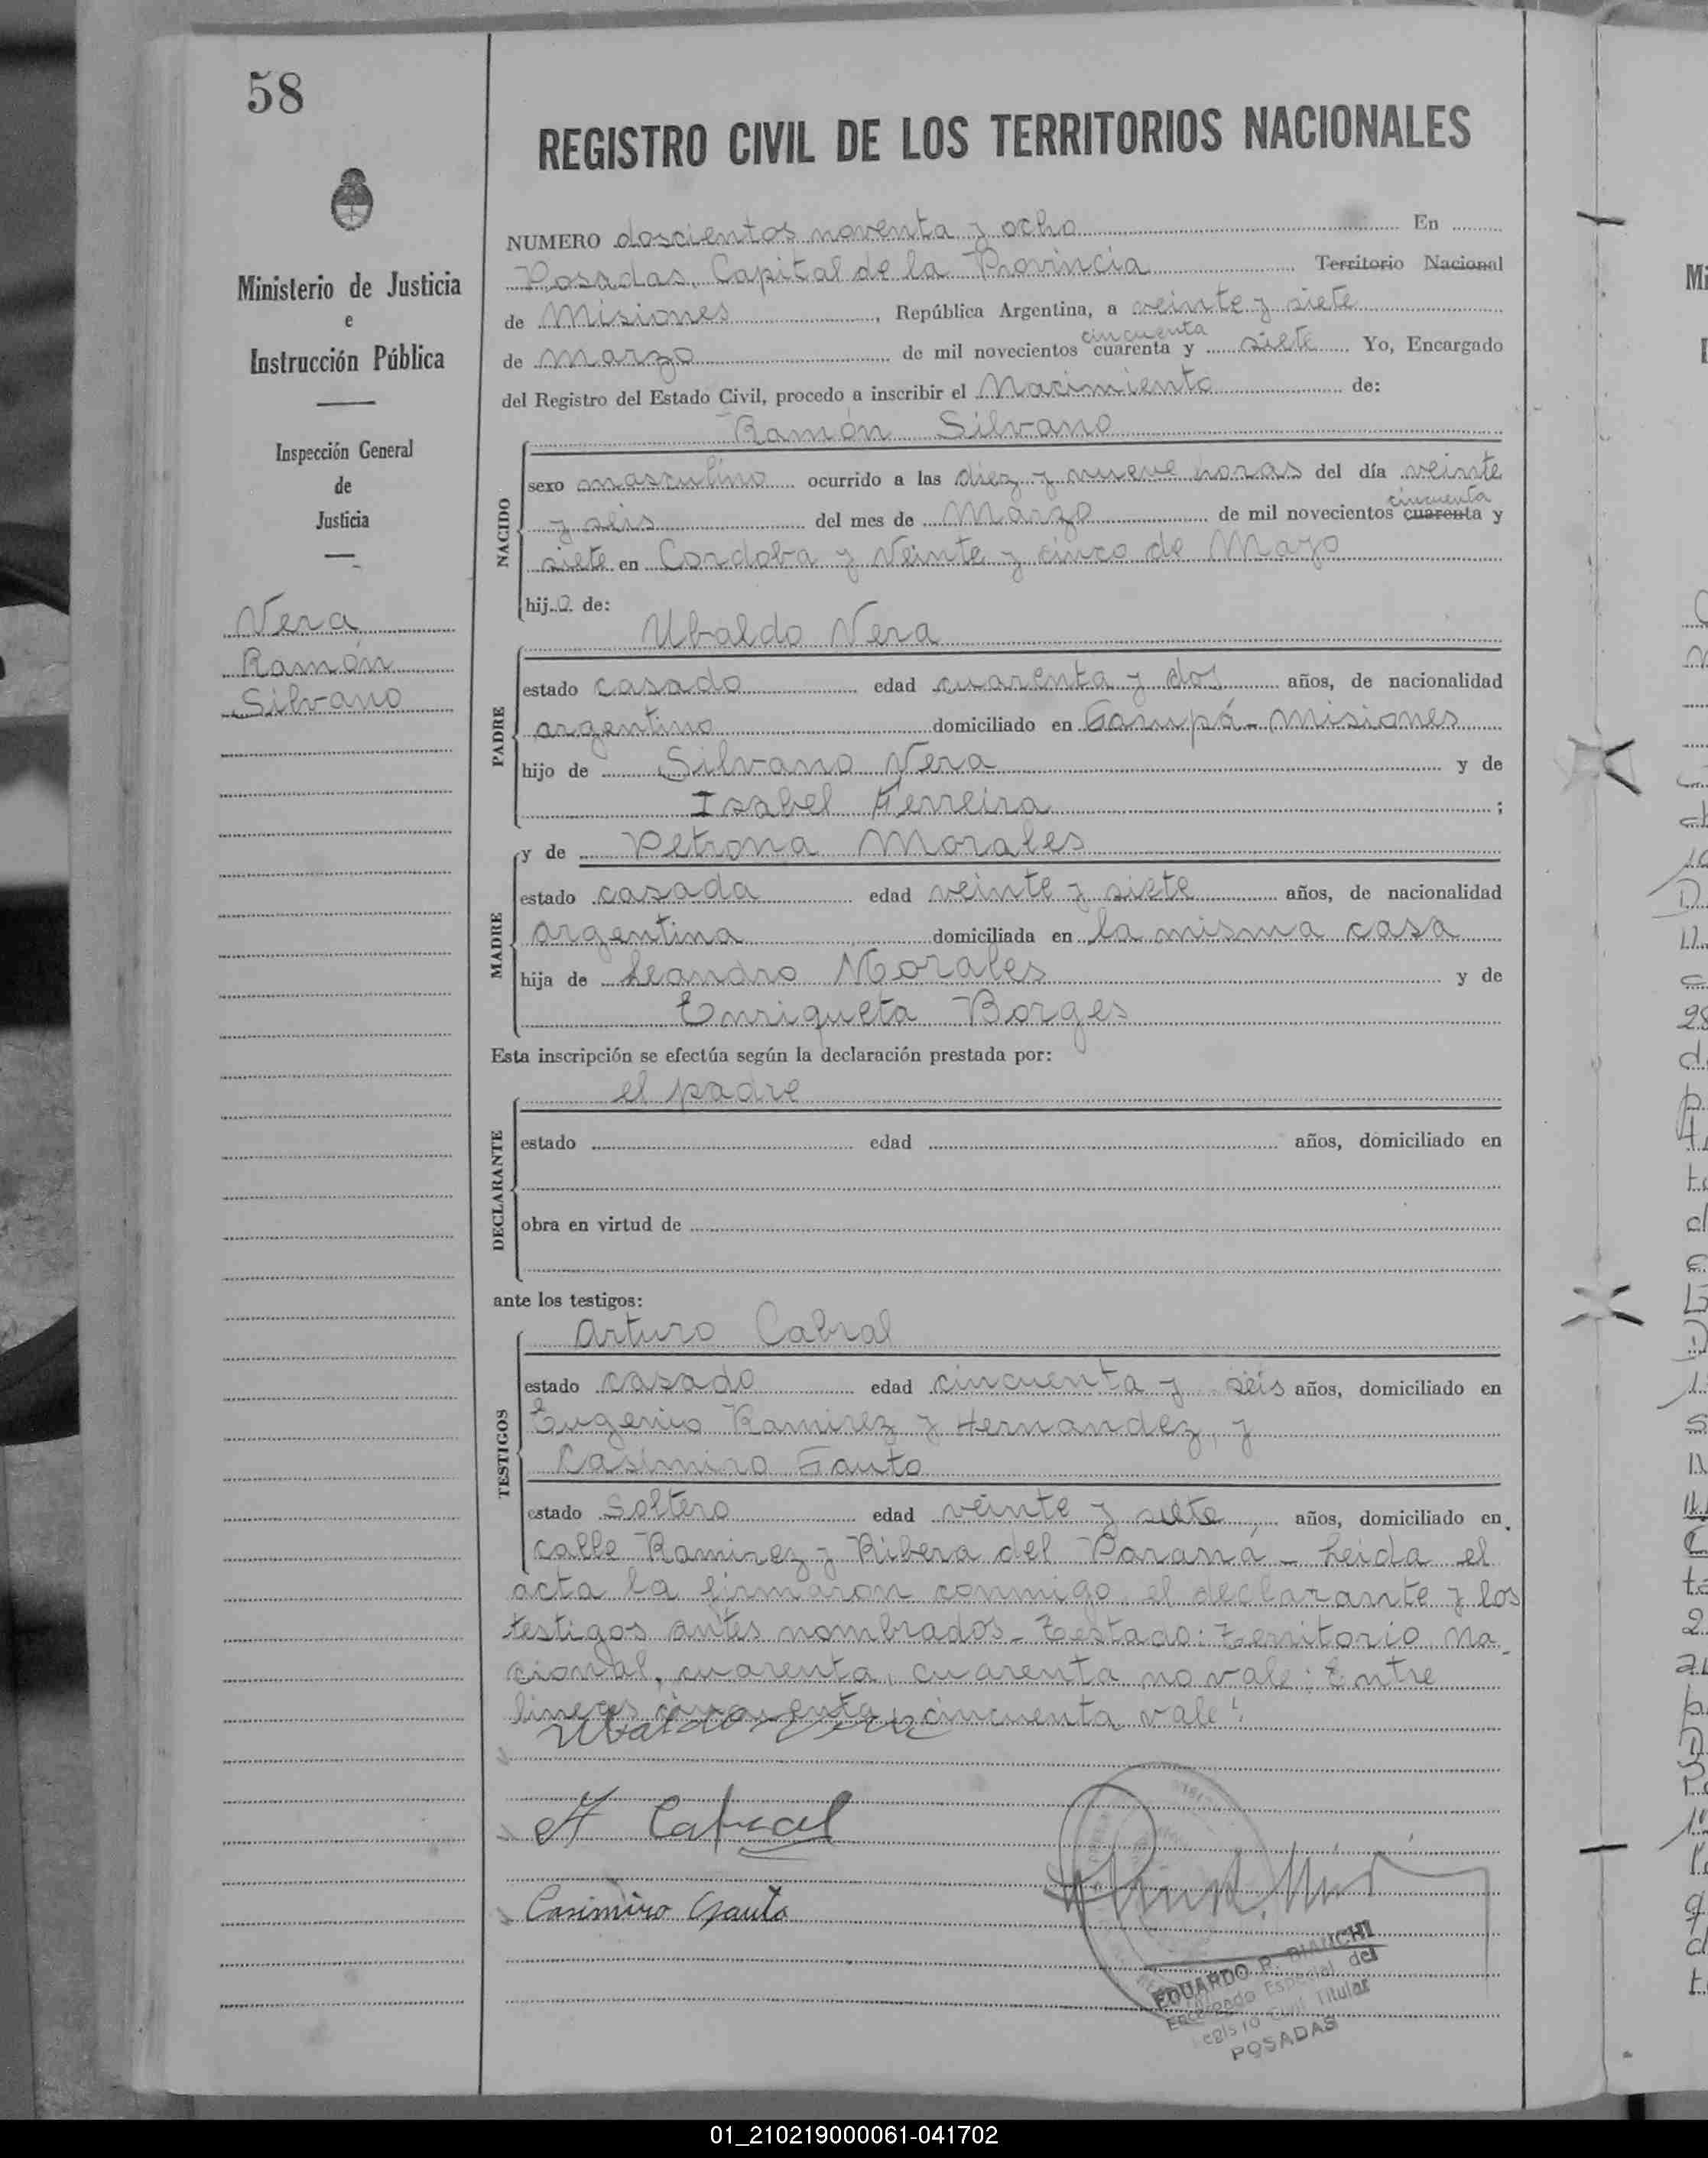 58
REGISTRO CIVIL DE LOS TERRITORIOS NACIONALES
Ministerio de Justicia
e
Instrucción Pública
Inspección General
de
Justicia
Vera
Ramón
Silvano
NUMERO doscientos noventa y ocho En
Posadas, Capital de la Provincia Territorio Nacional
de Misiones, República Argentina, a veinte y siete
cincuenta
de Marzo de mil novecientos cuarenta y siete Yo, Encargado
del Registro del Estado Civil, procedo a inscribir el Nacimiento de:
NACIDO
Ramón Silvano
sexo masculino ocurrido a las diez y nueve horas del día veinte
cincuenta
y seis del mes de Marzo de mil novecientos cuarenta y
siete en Cordoba y Veinte y cinco de Mayo
hijo de:
PADRE
Ubaldo Vera
estado casado edad cuarenta y dos años, de nacionalidad
argentino domiciliado en Garupá - Misiones
hijo de Silvano Vera y de
Isabel Ferreira ;
MADRE
y de Petrona Morales
estado casada edad veinte y siete años, de nacionalidad
argentina domiciliada en la misma casa
hija de Leandro Morales y de
Enriqueta Borges
Esta inscripción se efectúa según la declaración prestada por:
DECLARANTE
el padre
estado edad años, domiciliado en
obra en virtud de
ante los testigos:
TESTIGOS
Arturo Cabral
estado casado edad cincuenta y seis años, domiciliado en
Eugenio Ramirez y Hernandez, y
Casimiro Gauto
estado Soltero edad veinte y siete años, domiciliado en
calle Ramirez y Ribera del Paraná - Leida el
acta la firmaron conmigo el declarante y los
testigos antes nombrados - Testado: Territorio Na-
cional, cuarenta, cuarenta no vale: Entre
lineas cincuenta, cincuenta vale!
Ubaldo Vera
A Cabral
Casimiro Gauto
EDUARDO R. BIANCHI
Encargado Especial del
Registro Civil Titular
POSADAS
01_210219000061-041702